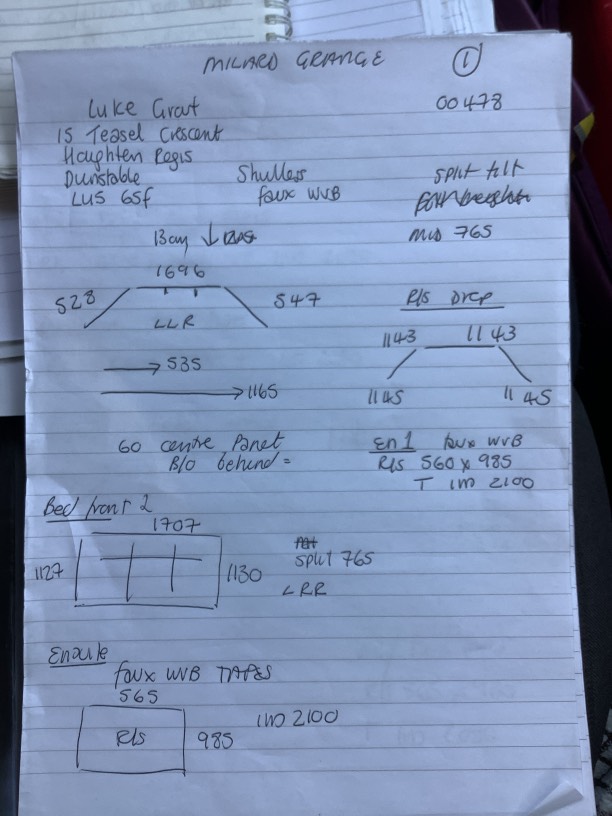 MILARD GRANGE 1
Luke Grat 00478
15 Teasel Crescent
Houghten Regis
Dunstable Shulless split tilt
LU5 6SF faux WVB
Bay ↓ mid 765
1696
528 547 R/s Drop
LLR 1143 1143
→ 535
→ 1165 1145 1145
60 centre Panel En1 faux WVB
B/O behind = R/s 560 x 985
T IW 2100
Bed front 2
1707
split 765
1127 1130
LRR
Ensuite
faux WVB TAPES
565
IW 2100
R/s 985